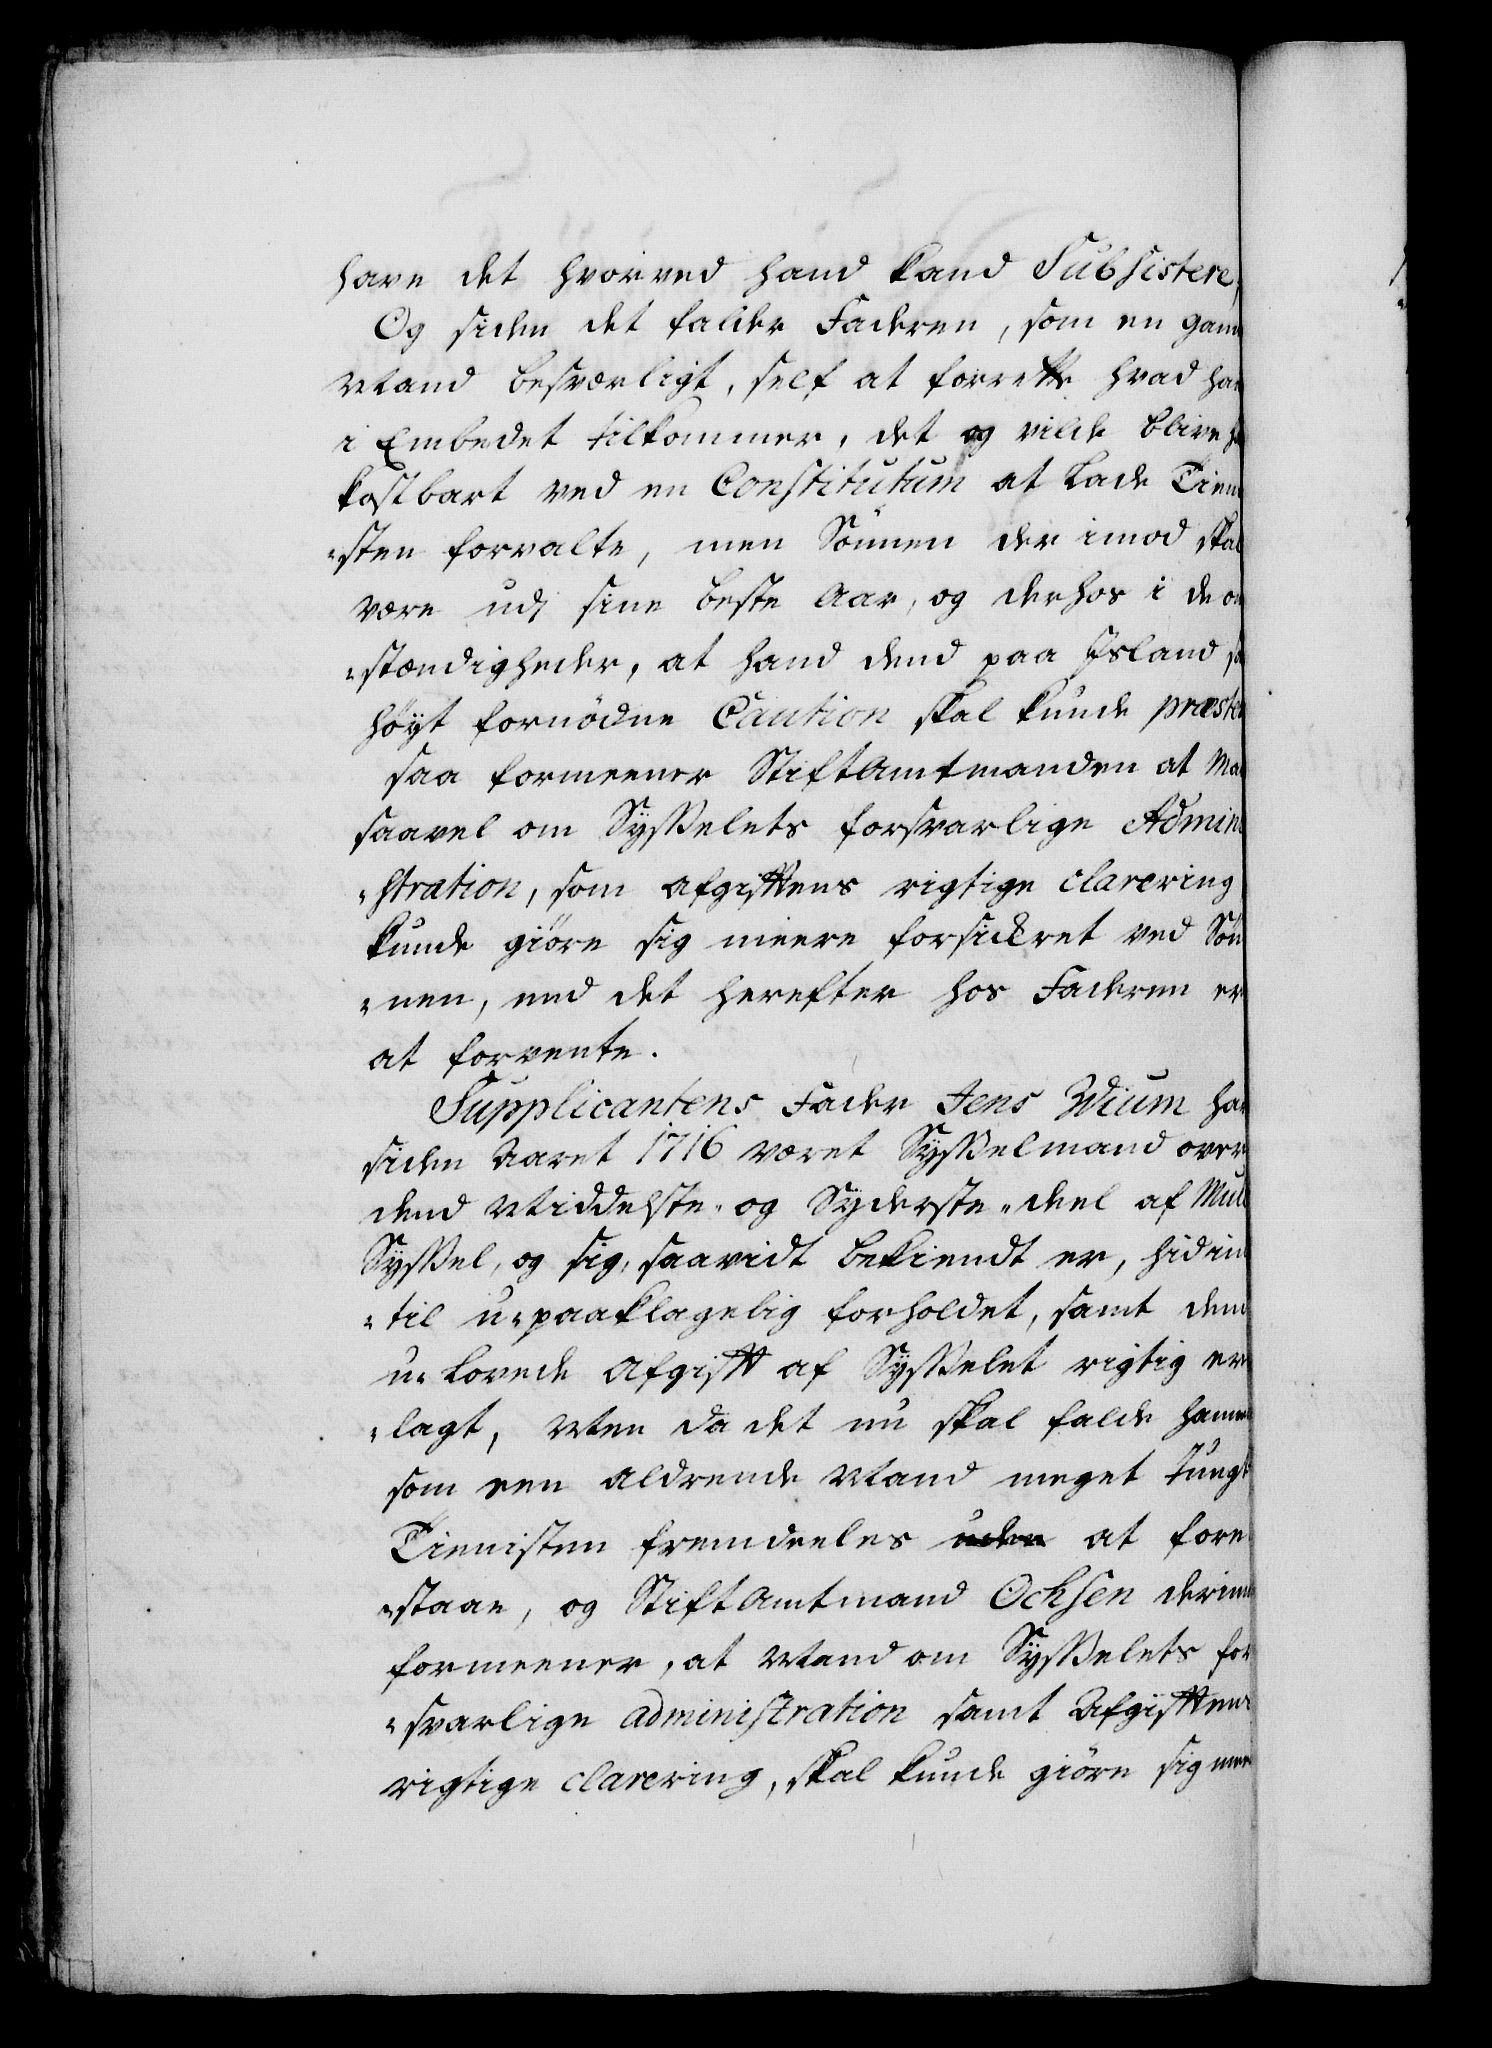 have det hvorved hand kand Subsistere,
Og siden det falder Faderen, som en gam
Mand besværligt, self at forrette hvad ha
i Embedet tilkommer, det og vilde blive
kostbart ved en Constitutum at lade Tiene
"sten forvalte, men Sønnen der imod skal
være udj sine beste Aar, og derhos i de om
"stændigheder, at hand dend paa Jsland
høyt fornødne Caution skal kunde præster
saa formeener Stiftamtmanden at Ma
saavel om Sysselets forsvarlige Admini
"stration, som afgiftens rigtige clarering
kunde giöre sig meere forsickret ved Sön
"nen, end det herefter hos Faderen er
at forvente.
Supplicantens Fader Jens Wium har
siden Aaret 1716 været Sysselmand over
dend Middelste- og Syderste-deel af Mule
Syssel, og sig, saavidt bekiendt er, hidin
"til u-paaklagelig forholdet, samt den
u-lovede Afgift af Sysselet rigtig er
"lagt, Men da det nu skal falde ham
som een aldrende Mand meget tungt
Tienisten fremdeeles uden at fore
"staae, og Stiftamtmand Ochsen derim
formeener, at Mand om Sysselets for
"svarlige administration samt Afgiftens
rigtige clarering, skal kunde giöre sig mee